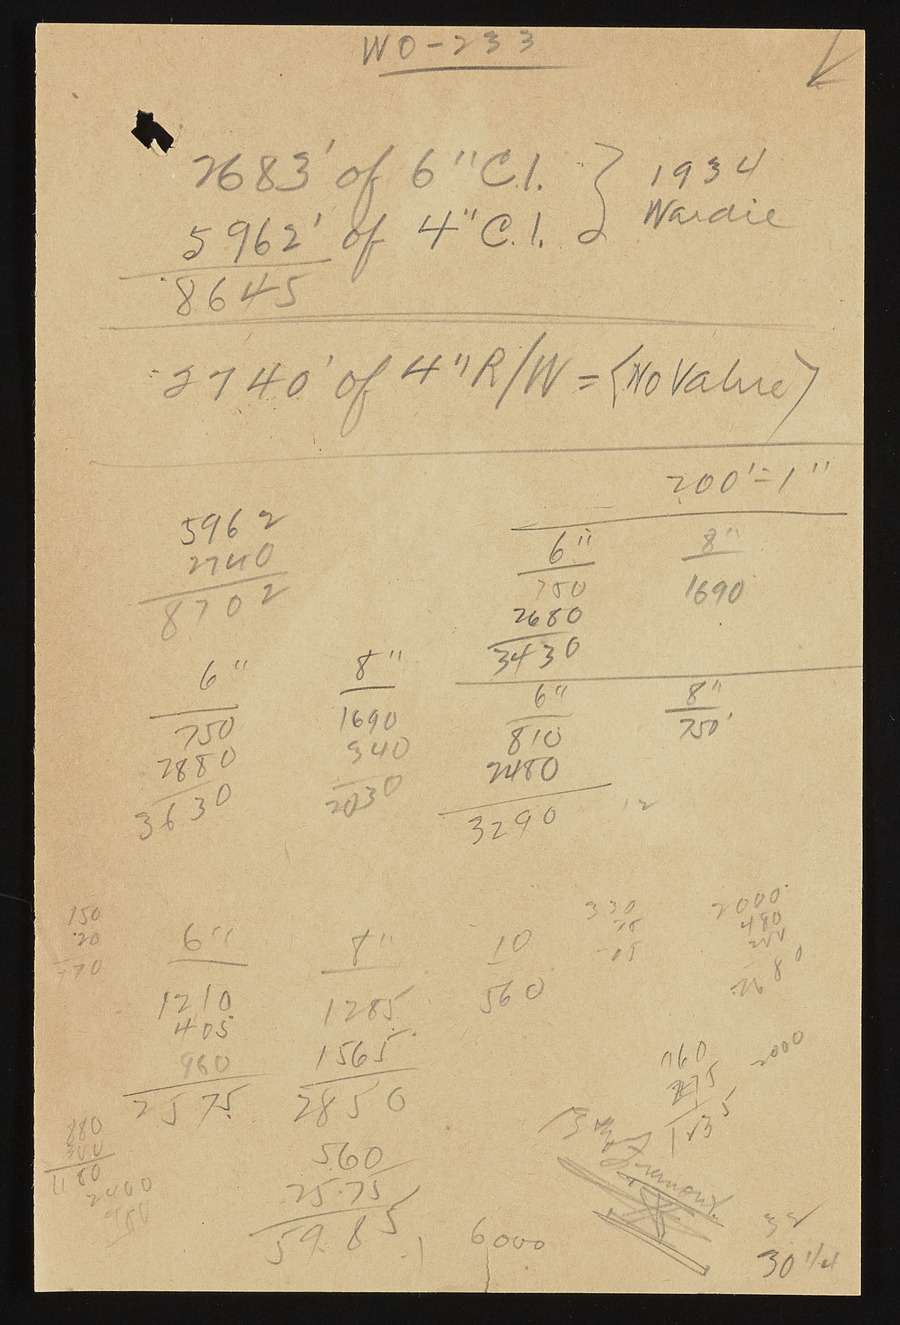 WO-233
2683' of 6" C.I. } 1934
5962' of 4" C.I. } Wardie
8645
2740' of 4" R/W = (No Value)
200' = 1"
5962
2740
8702
6" 8"
750 1690
2680
3430
6" 8"
750 1690
2880 340
3630 2030
6" 8"
810 750'
2480
3290
12
150
20
170
6" 8" 10
1210 1285 560
405 1565
960 2850
2575
330
2000
480
200
760
275
2000
880
300
1180
2400
560
2575
5985
6000
30 1/4